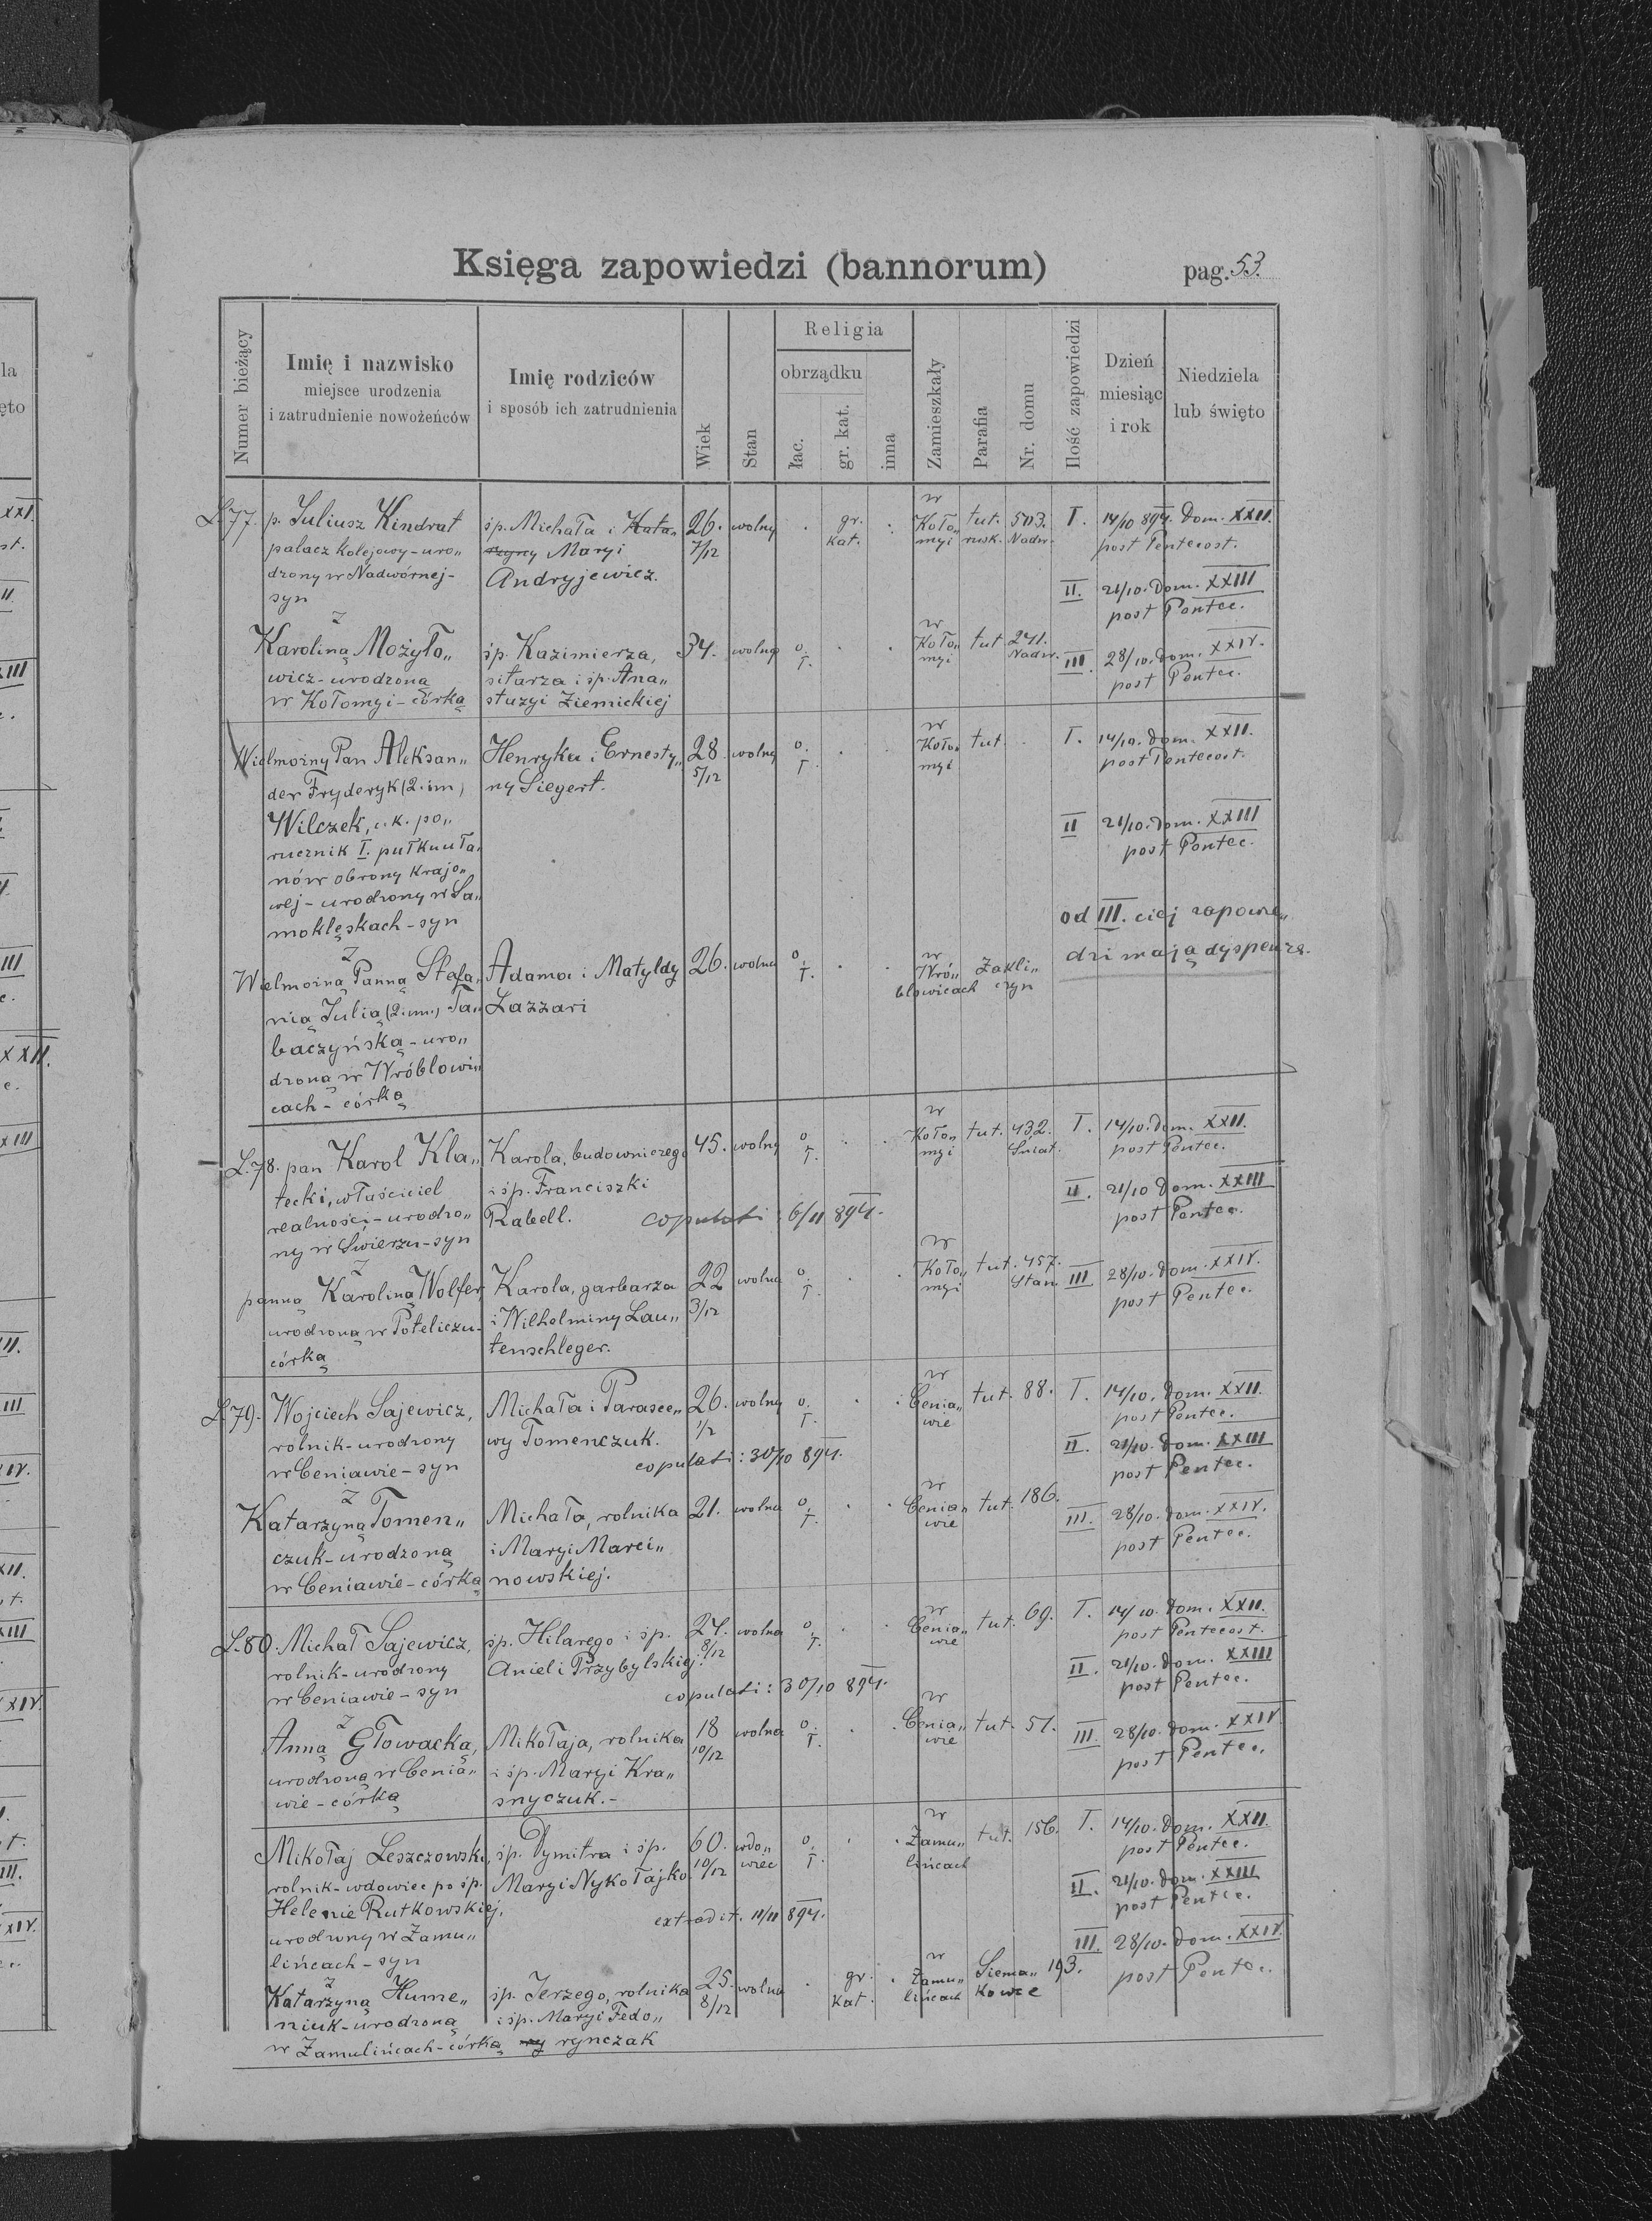 Księga zapowiedzi (bannorum)
pag. 53.
Numer bieżący
Imię i nazwisko
miejsce urodzenia
i zatrudnienie nowożeńców
Imię rodziców
i sposób ich zatrudnienia
Wiek
Stan
Religia
obrządku
łac.
gr. kat.
inna
Zamieszkały
Parafia
Nr. domu
Ilość zapowiedzi
Dzień
miesiąc
i rok
Niedziela
lub święto
L.77. p. Juliusz Kindrat
palacz kolejowy - uro„
dzony w Nadwórnej -
syn
śp. Michała i Kata„
rzyny Maryi
Andryjewicz.
26. 7/12
wolny
gr. kat.
w Koło„ myi
tut. rusk.
503. Nadw.
I. 14/10 894. Dom. XXII.
post Pentecost.
II. 21/10. Dom. XXIII
post Pentec.
z
Karoliną Możyło„
wicz - urodzoną
w Kołomyi - córką
śp. Kazimierza,
sitarza i śp. Ana„
stazyi Ziemickiej
34.
wolną
o. ł.
w Koło„ myi
tut
241. Nadw.
III. 28/10. dom. XXIV.
post Pentec.
Wielmożny Pan Aleksan„
der Fryderyk (2. im)
Wilczek, c. k. po„
rucznik I. pułku uła„
nów obrony krajo„
wej - urodzony w Sa„
moklęskach - syn
Henryka i Ernesty„
ny Siegert.
28 5/12
wolny
o. ł
w Koło„ myi
tut.
I. 14/10. dom. XXII.
post Pentecost.
II 21/10. dom. XXIII
post Pentec.
od III. ciej zapowie„
dzi mają dyspenzę.
z
Wielmożną Panną Stefa„
nią Julią (2. im.) Ta„
baczyńską - uro„
dzoną w Wróblowi„
cach - córką
Adama i Matyldy
Lazzari
26.
wolna
o. ł.
w Wró„ blowicach
Zakli„ czyn
L.78. pan Karol Kla„
tecki, właściciel
realności, - urodzo„
ny w Swierzu - syn
Karola, budowniczego
i śp. Franciszki
Rabell.
copulati : 6/11 894.
45.
wolny
o ł.
w Koło„ myi
tut.
432. Śniat.
I. 14/10. dom. XXII.
post Pentec.
II. 21/10 dom. XXIII
post Pentec.
z
panną Karoliną Wolfer,
urodzoną w Poteliczu -
córką
Karola, garbarza
i Wilhelminy Lau„
tenschleger.
22 3/12
wolna
o. ł.
w Koło„ myi
tut.
457. Stan.
III 28/10. dom. XXIV.
post Pentec.
L.79. Wojciech Sajewicz,
rolnik - urodzony
w Ceniawie - syn
Michała i Parasce„
wy Tomenczuk.
copulati : 30/10 894.
26. 1/2
wolny
o. ł.
w Cenia„ wie
tut.
88.
I. 14/10. dom. XXII.
post Pentec.
II. 21/10. dom. XXIII
post Pentec.
z
Katarzyną Tomen„
czuk - urodzoną
w Ceniawie - córką
Michała, rolnika
i Maryi Marci„
nowskiej.
21.
wolna
o. ł.
w Cenia„ wie
tut.
186.
III. 28/10. dom. XXIV.
post Pentec.
L.80. Michał Sajewicz,
rolnik - urodzony
w Ceniawie - syn
śp. Hilarego i śp.
Anieli Przybylskiej.
copulati : 30/10 894.
24. 8/12
wolna
o. ł.
w Cenia„ wie
tut.
69.
I. 14/10. dom. XXII.
post Pentecost.
II. 21/10. dom. XXIII
post Pentec.
z
Anną Głowacką,
urodzoną w Cenia„
wie - córką
Mikołaja, rolnika
i śp. Maryi Kra„
snyczuk. -
18 10/12
wolna
o. ł.
w Cenia„ wie
tut.
51.
III. 28/10. dom. XXIV.
post Pentec.
Mikołaj Leszczowski,
rolnik - wdowiec po śp.
Helenie Rutkowskiej,
urodzony w Zamu„
lińcach - syn
śp. Dymitra i śp.
Maryi Nykołajko.
extradit. 11/11 894.
60. 10/12
wdo„ wiec
o. ł.
w Zamu„ lińcach
tut.
156.
I. 14/10. dom. XXII.
post Pentec.
II. 21/10. dom. XXIII
post Pentec.
III. 28/10. dom. XXIV.
post Pentec.
z
Katarzyną Hume„
niuk - urodzoną
w Zamulińcach - córką
śp. Jerzego, rolnika
i śp. Maryi Fedo„
rynczak
25. 8/12
wolna
gr. kat.
w Zamu„ lińcach
Siema„ kowce
193.